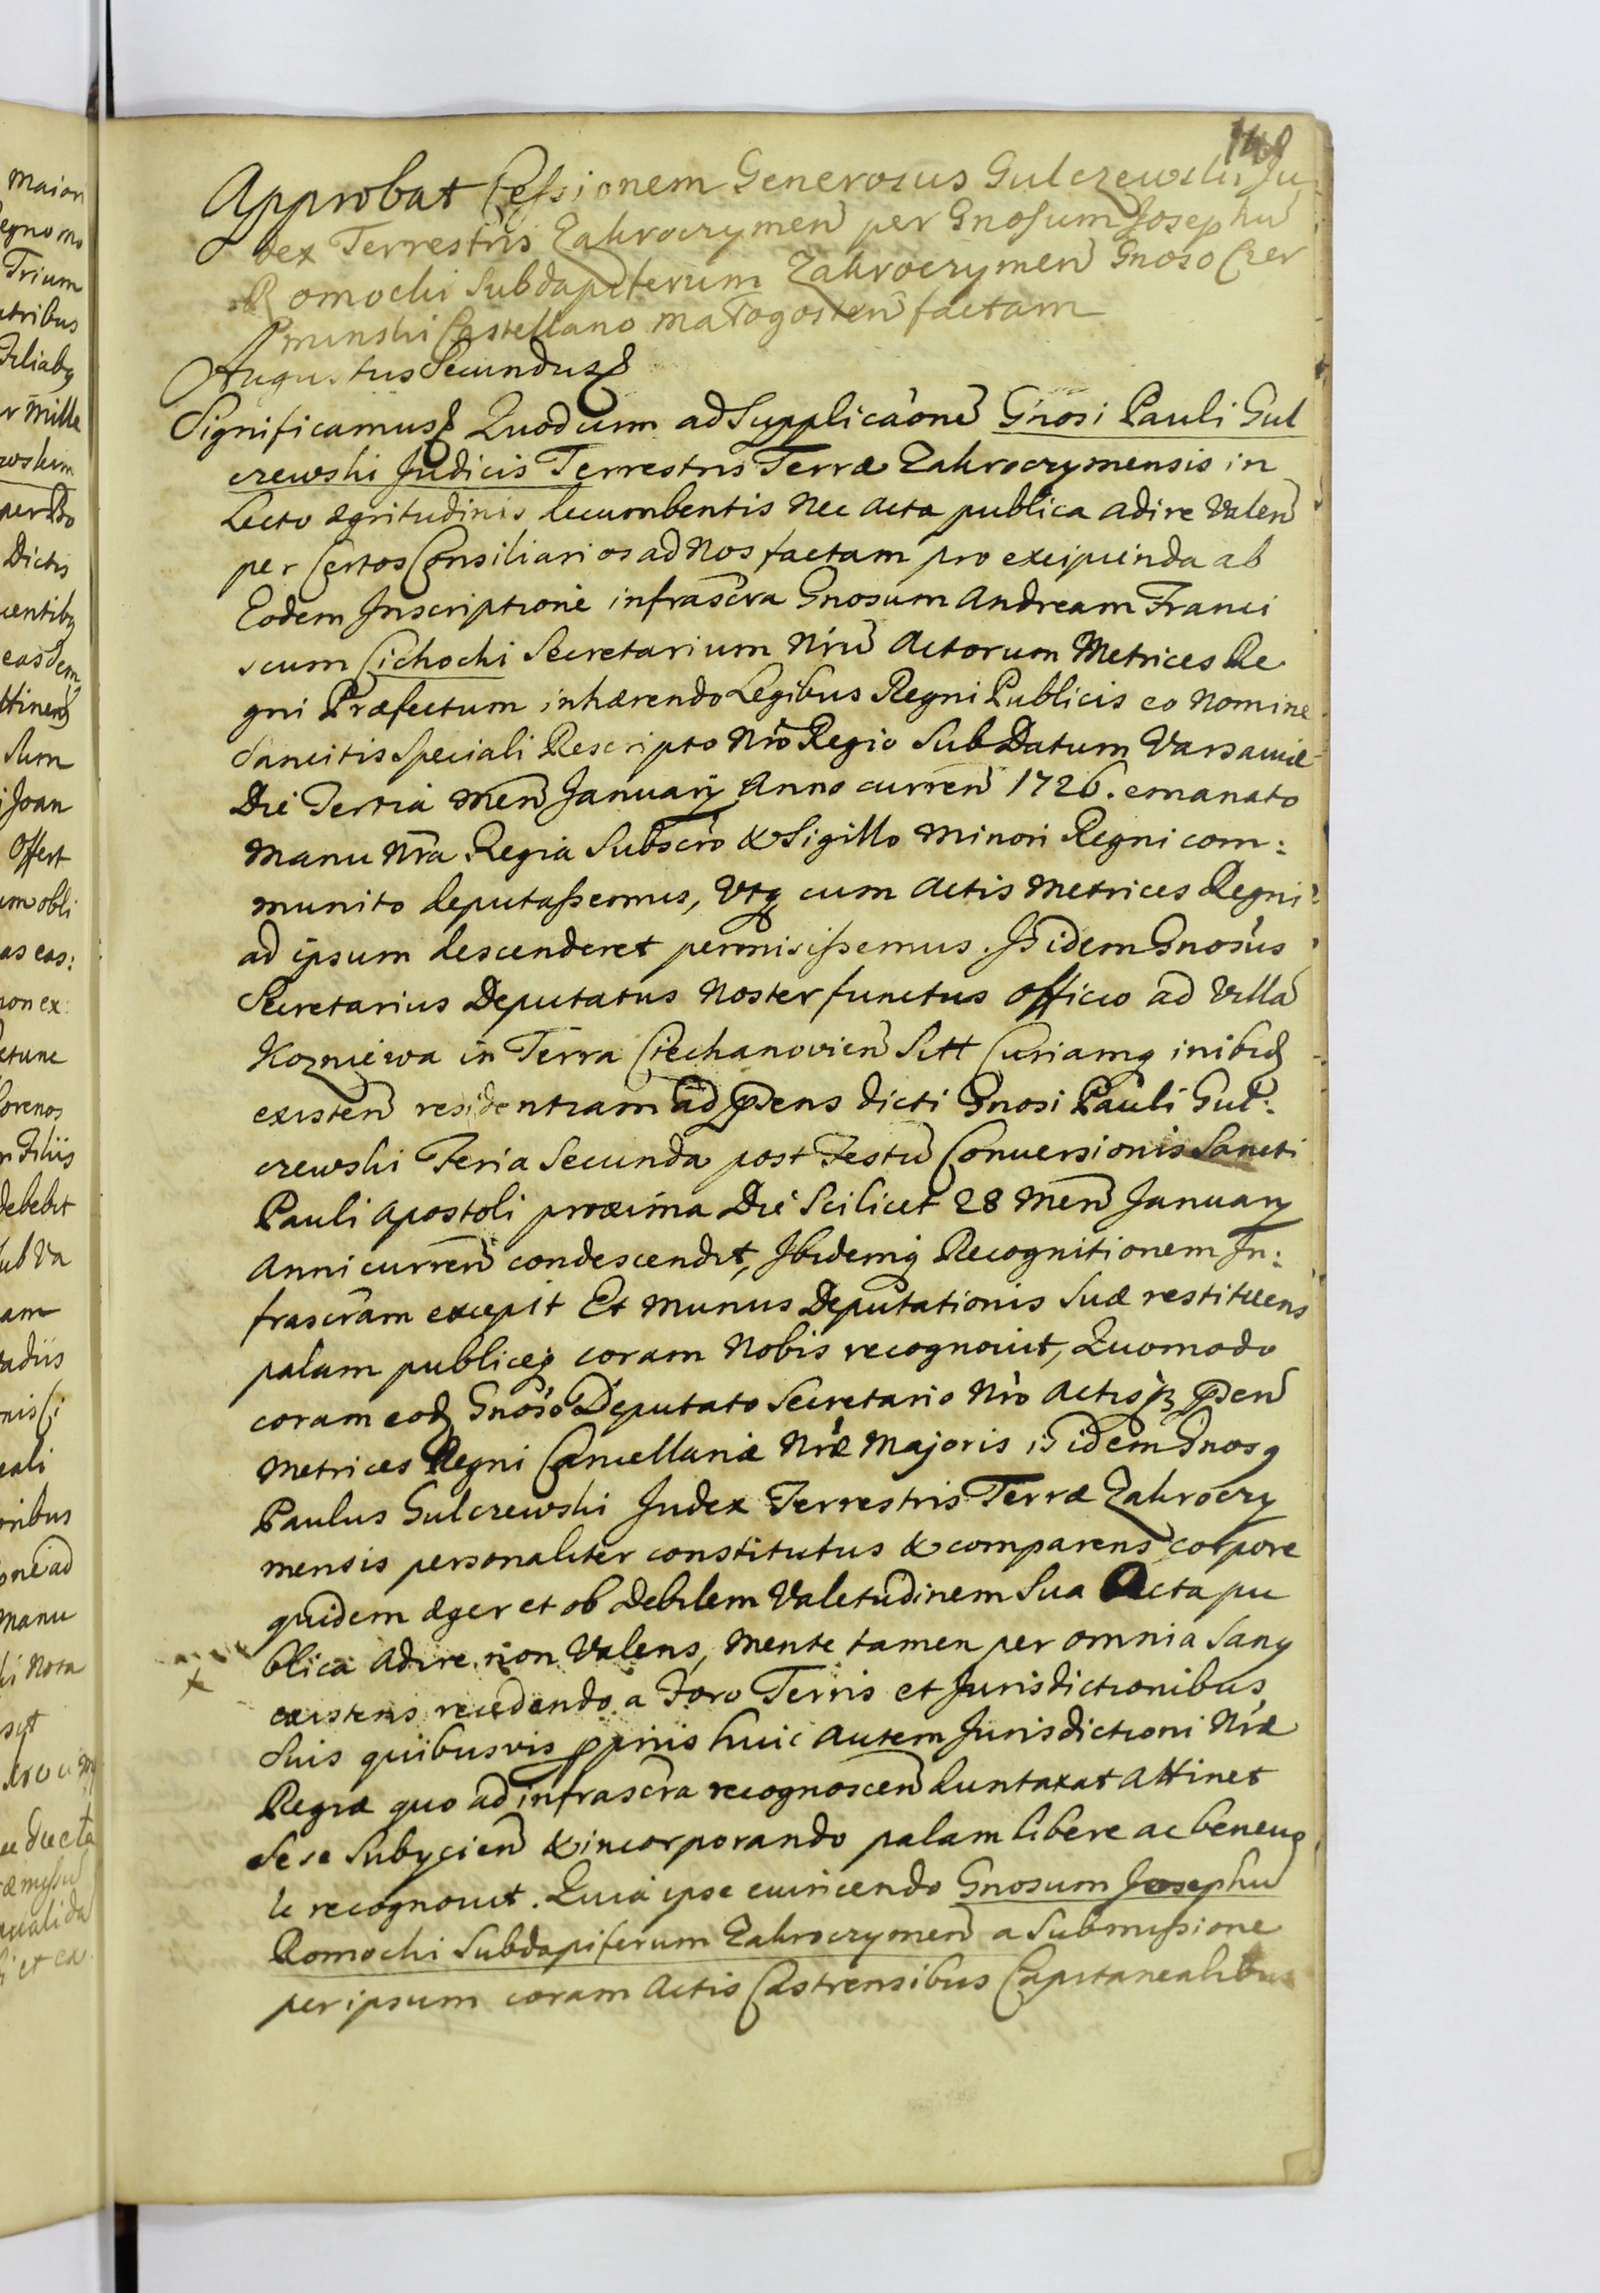 148
Approbat Cessionem Generosus Gulczewski Ju
dex Terrestris Zakroczymen̄ per Gnosum Josephū
Romocki Subdapiferum Zakroczymen̄ Gnoso Czer
minski Castellano Małogosten̄ factam
Augustus Secundus
Significamus Quod cum ad Supplicaōnē Gnosi Pauli Gul
czewski Judicis Terrestris Terræ Zakroczymensis in
Lecto ægritudinis decumbentis nec acta publica adire Valen̄
per Certos Consiliarios ad Nos factam pro excipienda ab
Eodem Inscriptione infrascra Gnosum Andream Franci
scum Cichocki Secretarium Nrū Actorum Metrices Re
gni Præfectum inhærendo Legibus Regni Publicis eo Nomine
Sancitis Speciali Rescripto Nro Regio Sub Datum Varsaviæ
Die Tertia Men̄ Januarij Anno curren̄ 1726. emanato
Manu Nra Regia Subscro & Sigillo Minori Regni com:
munito deputassemus, Vtq cum Actis Metrices Regni
ad ipsum descenderet permisissemus. Is idem Gnosus
Secretarius Deputatus Noster functus officio ad Villā
Kozniewa in Terra Ciechanovien̄ Sitt Curiamq inibid
existen̄ residentiam ad præsens dicti Gnosi Pauli Gul:
czewski Feria Secunda post Festū Conversionis Sancti
Pauli Apostoli proxima Die Scilicet 28 Men̄ January
Anni curren̄ condescendit, Ibidemq Recognitionem In:
frascram excepit Et munus Deputationis Suæ restituens
palam publiceq coram Nobis recognovit, Quomodo
coram eod Gnoso Deputato Secretario Nro Actisq præsen̄
Metrices Regni Cancellariæ Nræ Majoris is idem Gnosq
Paulus Gulczewski Judex Terrestris Terræ Zakroczy
mensis personaliter constitutus & comparens corpore
quidem æger et ob Debilem Valetudinem Sua Acta pu
blica adire non Valens, mente tamen per omnia Sang
existens recedendo a Foro Terris et Jurisdictionibus
Suis quibusvis ppriis huic autem Jurisdictioni Nræ
Regiæ quo ad infrascra recognoscen̄ duntaxat attinet
Sese Subycien̄ & incorporando palam libere ac benevo
le recognovit. Quia ipse evincendo Gnosum Josephū
Romocki Subdapiferum Zakroczymen̄ a Submissione
per ipsum coram Actis Castrensibus Capitanealibus